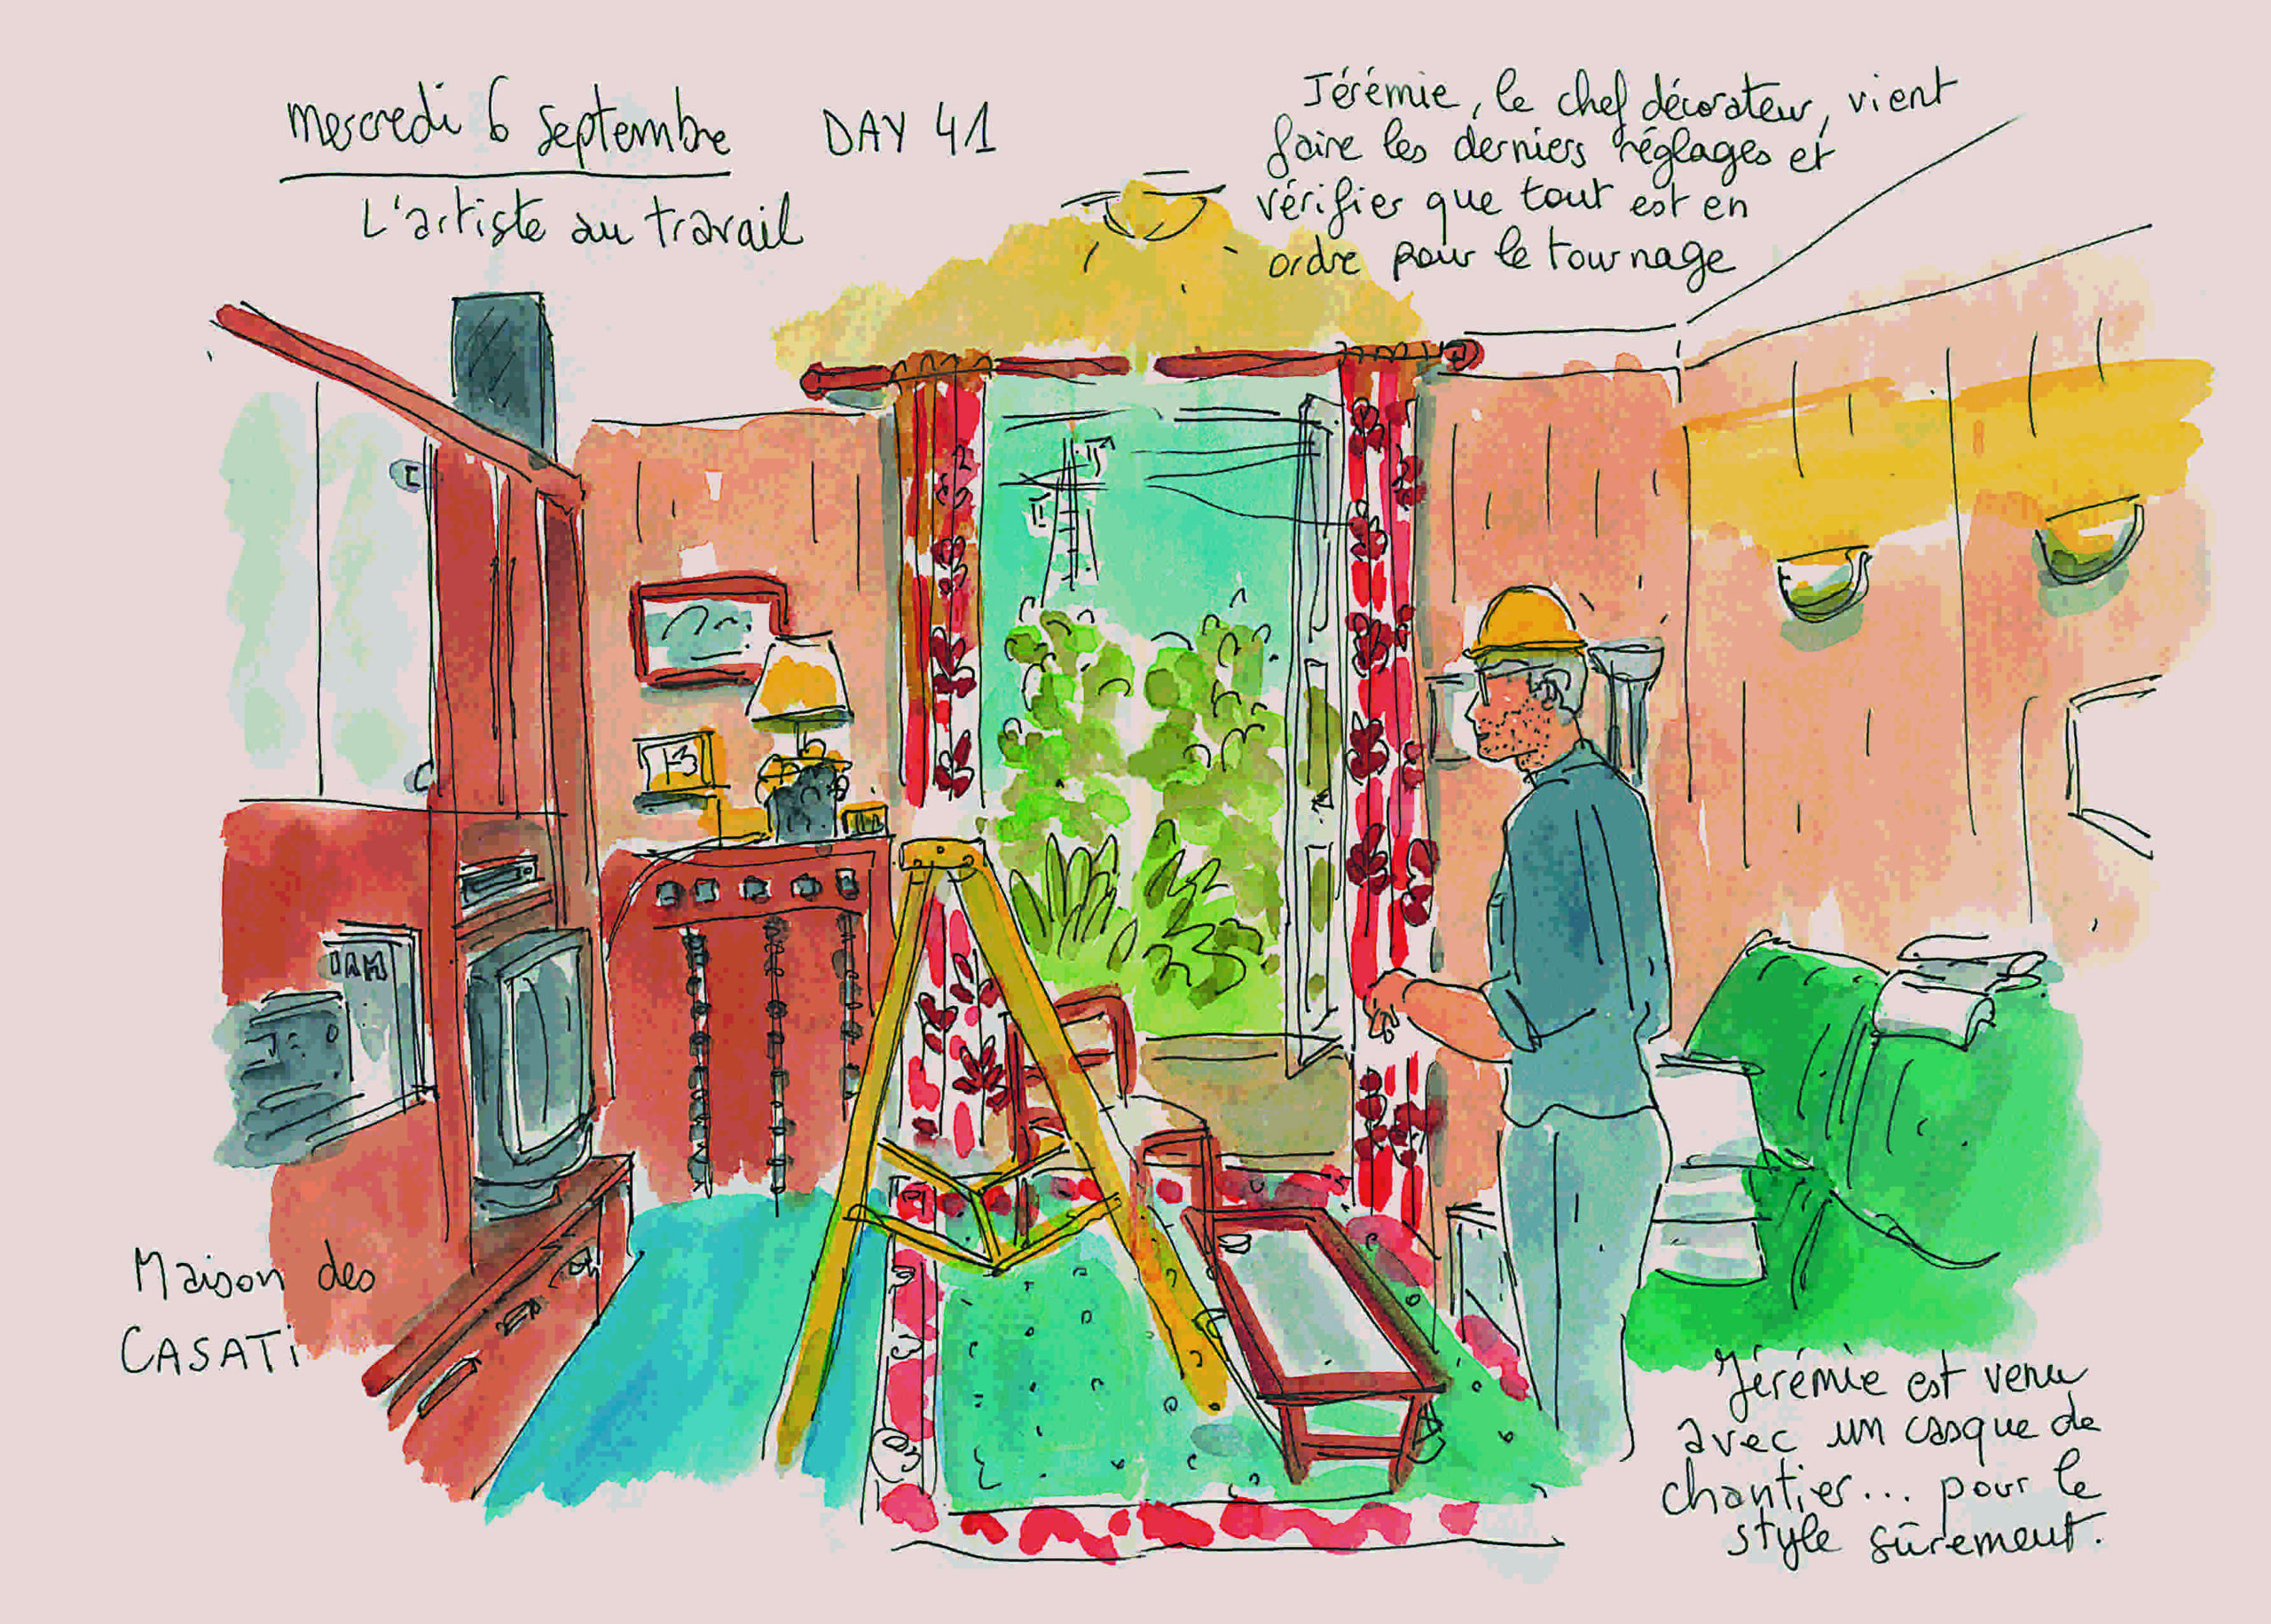 mercredi 6 septembre
DAY 41
L'artiste au travail
Jérémie, le chef décorateur, vient
faire les derniers réglages et
vérifier que tout est en
ordre pour le tournage
13
IAM
Maison des
CASATi
Jérémie est venu
avec un casque de
chantier... pour le
style sûrement.